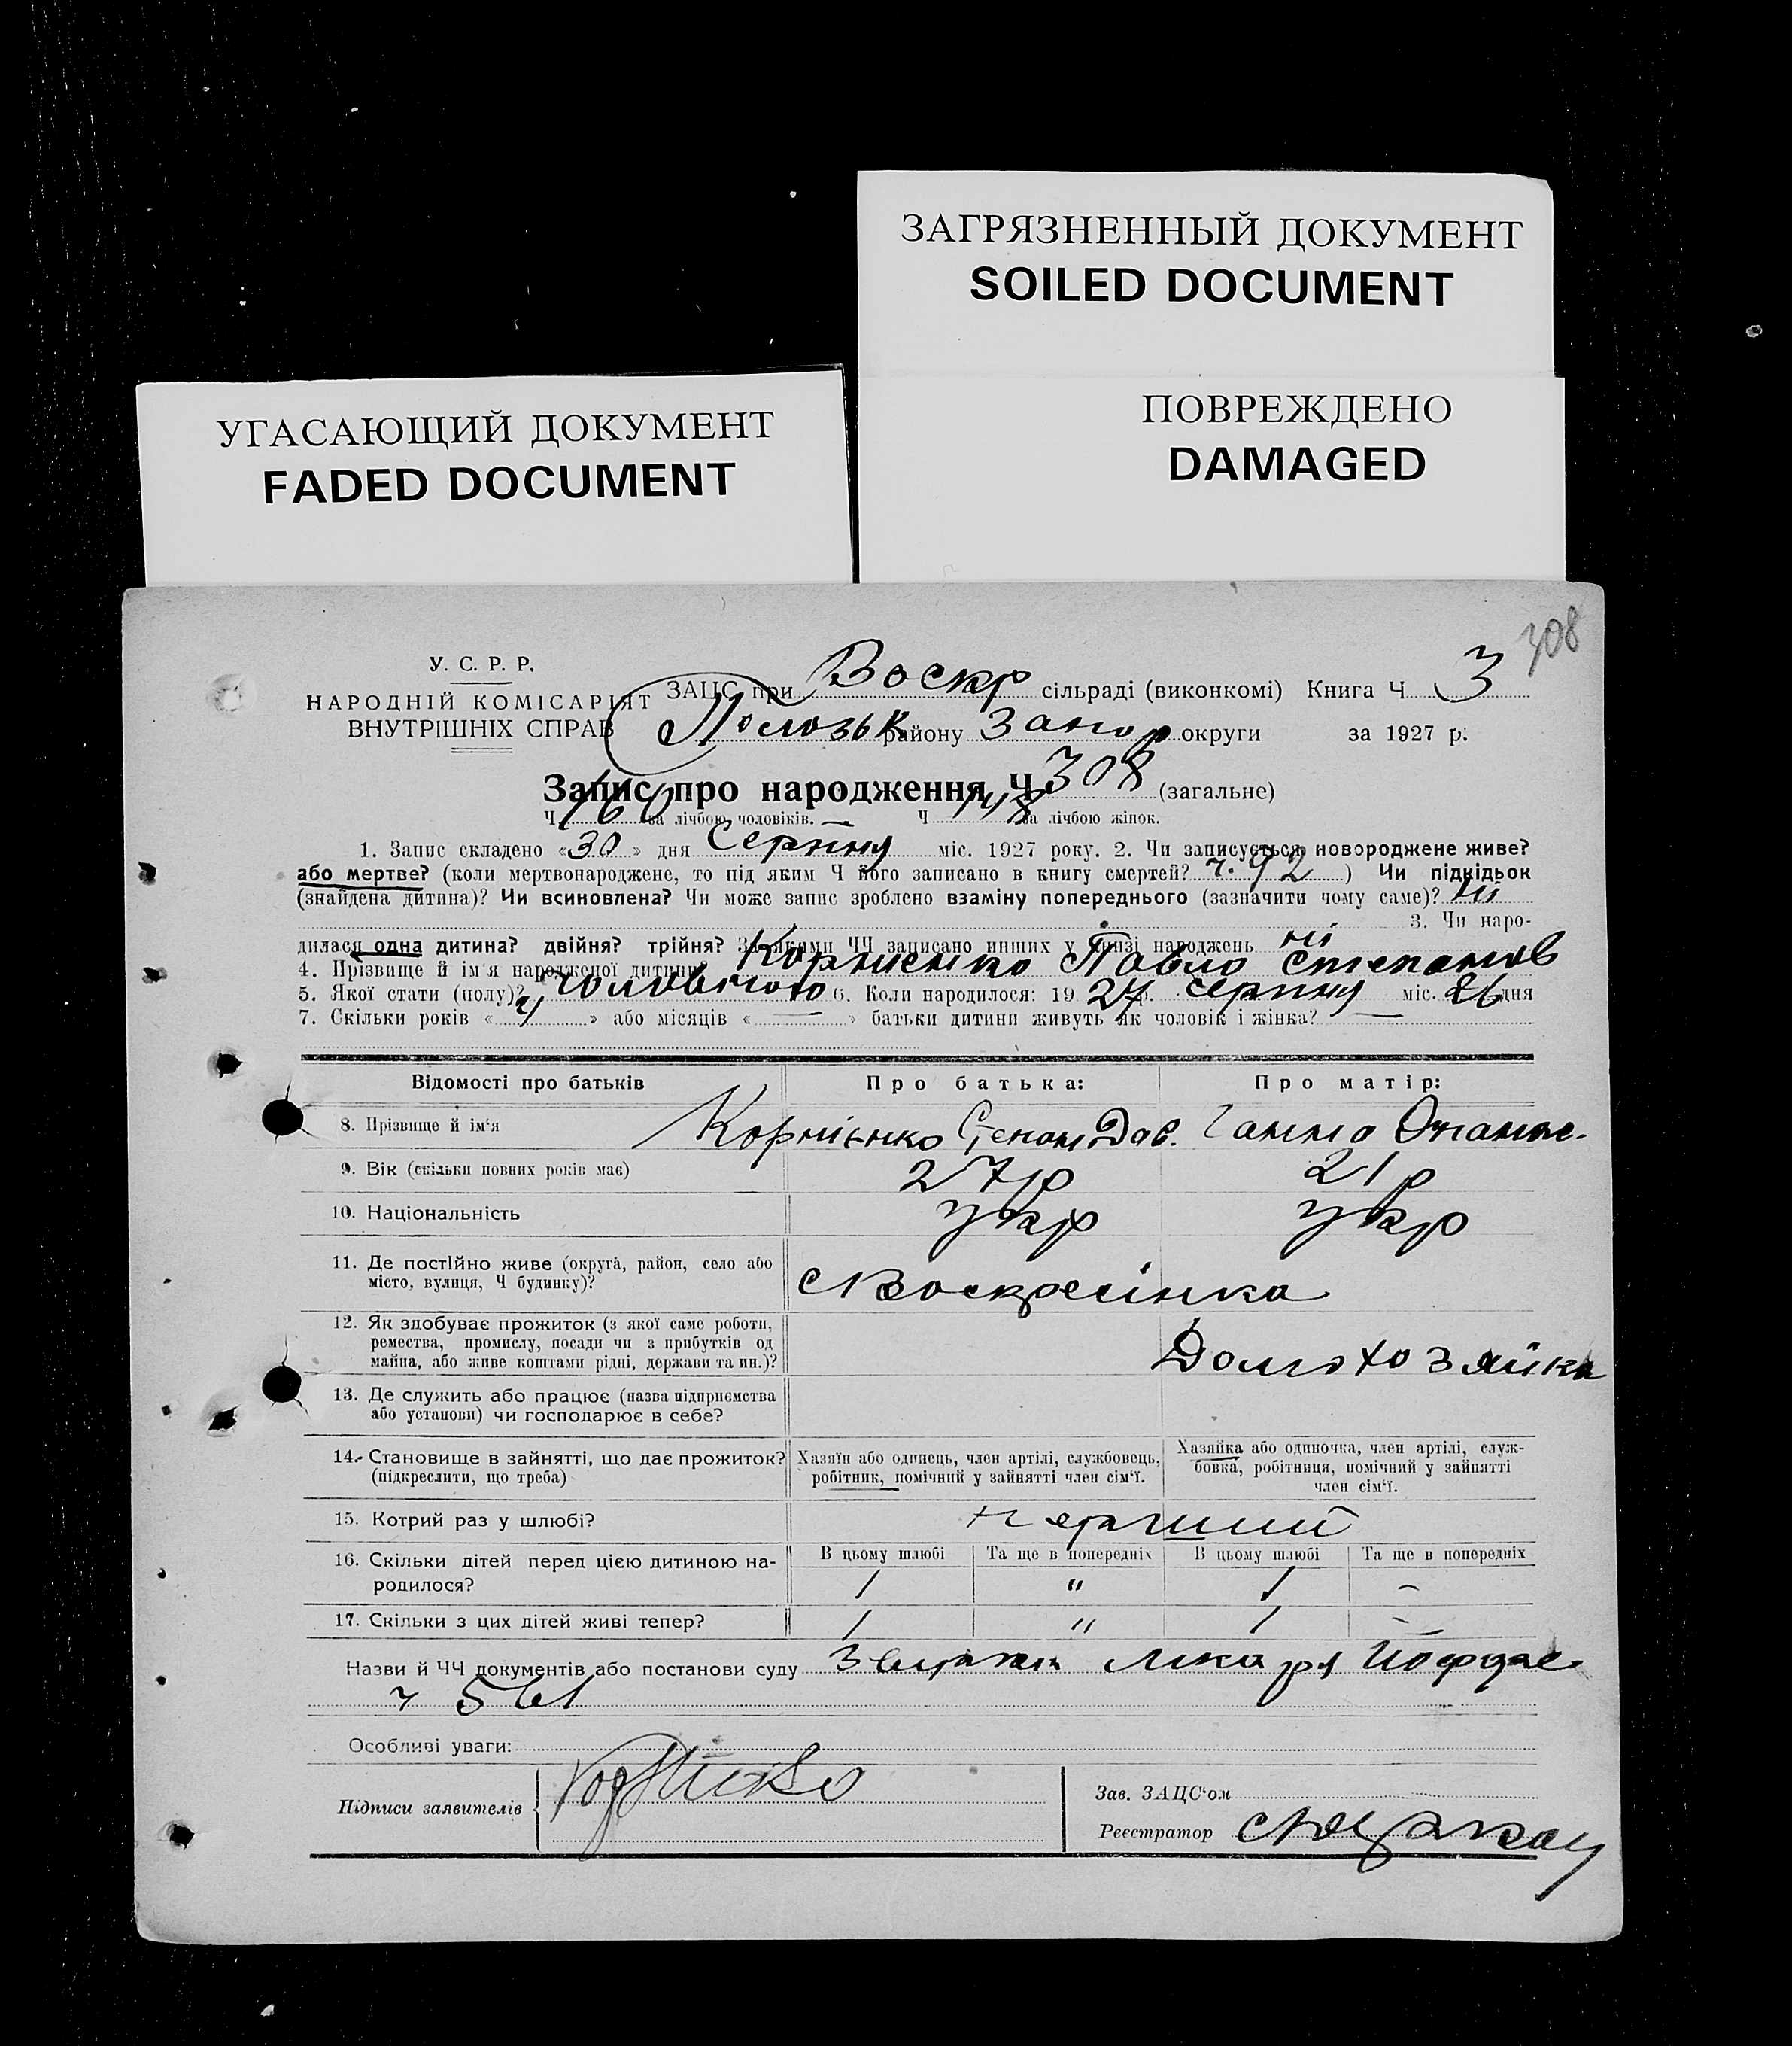 ЗАГРЯЗНЕННЫЙ ДОКУМЕНТ
SOILED DOCUMENT
ПОВРЕЖДЕНО
DAMAGED
УГАСАЮЩИЙ ДОКУМЕНТ
FADED DOCUMENT
308
У. С. Р. Р.
НАРОДНІЙ КОМІСАРІЯТ
ВНУТРІШНІХ СПРАВ
ЗАЦС при Воскр сільраді (виконкомі) Книга Ч 3
Пологівськ району Запор округи за 1927 р.
Запис про народження Ч 308 (загальне)
Ч 160 за лічбою чоловіків. Ч 148 за лічбою жінок.
1. Запис складено «30» дня Серпня міс. 1927 року. 2. Чи записується новороджене живе?
або мертве? (коли мертвонароджене, то під яким Ч його записано в книгу смертей? ч. 92) Чи підкідьок
(знайдена дитина)? Чи всиновлена? Чи може запис зроблено взаміну попереднього (зазначити чому саме)? ні
3. Чи наро-
дилася одна дитина? двійня? трійня? За якими ЧЧ записано инших у книзі народжень ні
4. Прізвище й ім'я народженої дитини? Корниенко Павло Степанов
5. Якої стати (полу)? Чоловічого 6. Коли народилося: 1927 р. серпня міс. 26 дня
7. Скільки років « » або місяців « — » батьки дитини живуть як чоловік і жінка? —
Відомості про батьків Про батька: Про матір:
8. Прізвище й ім'я Корнієнко Степан Дав. Ганна Опанас.
9. Вік (скільки повних років має) 27 р 21 р
10. Національність укр укр
11. Де постійно живе (округа, район, село або
місто, вулиця, Ч будинку)? с Воскресінка
12. Як здобуває прожиток (з якої саме роботи,
ремества, промислу, посади чи з прибутків од
майна, або живе коштами рідні, держави та ин.)? Домохозяйка
13. Де служить або працює (назва підприємства
або установи) чи господарює в себе?
14. Становище в зайнятті, що дає прожиток?
(підкреслити, що треба)
Хазяїн або одинець, член артілі, службовець,
робітник, помічний у зайнятті член сім'ї.
Хазяйка або одиночка, член артілі, служ-
бовка, робітниця, помічний у зайнятті
член сім'ї.
15. Котрий раз у шлюбі? перший
В цьому шлюбі Та ще в попередніх В цьому шлюбі Та ще в попередніх
16. Скільки дітей перед цією дитиною на-
родилося? 1 " 1 –
17. Скільки з цих дітей живі тепер? 1 " 1 –
Назви й ЧЧ документів або постанови суду лікаря
ч
Особливі уваги:
Підписи заявителів
Зав. ЗАЦС'ом
Реєстратор